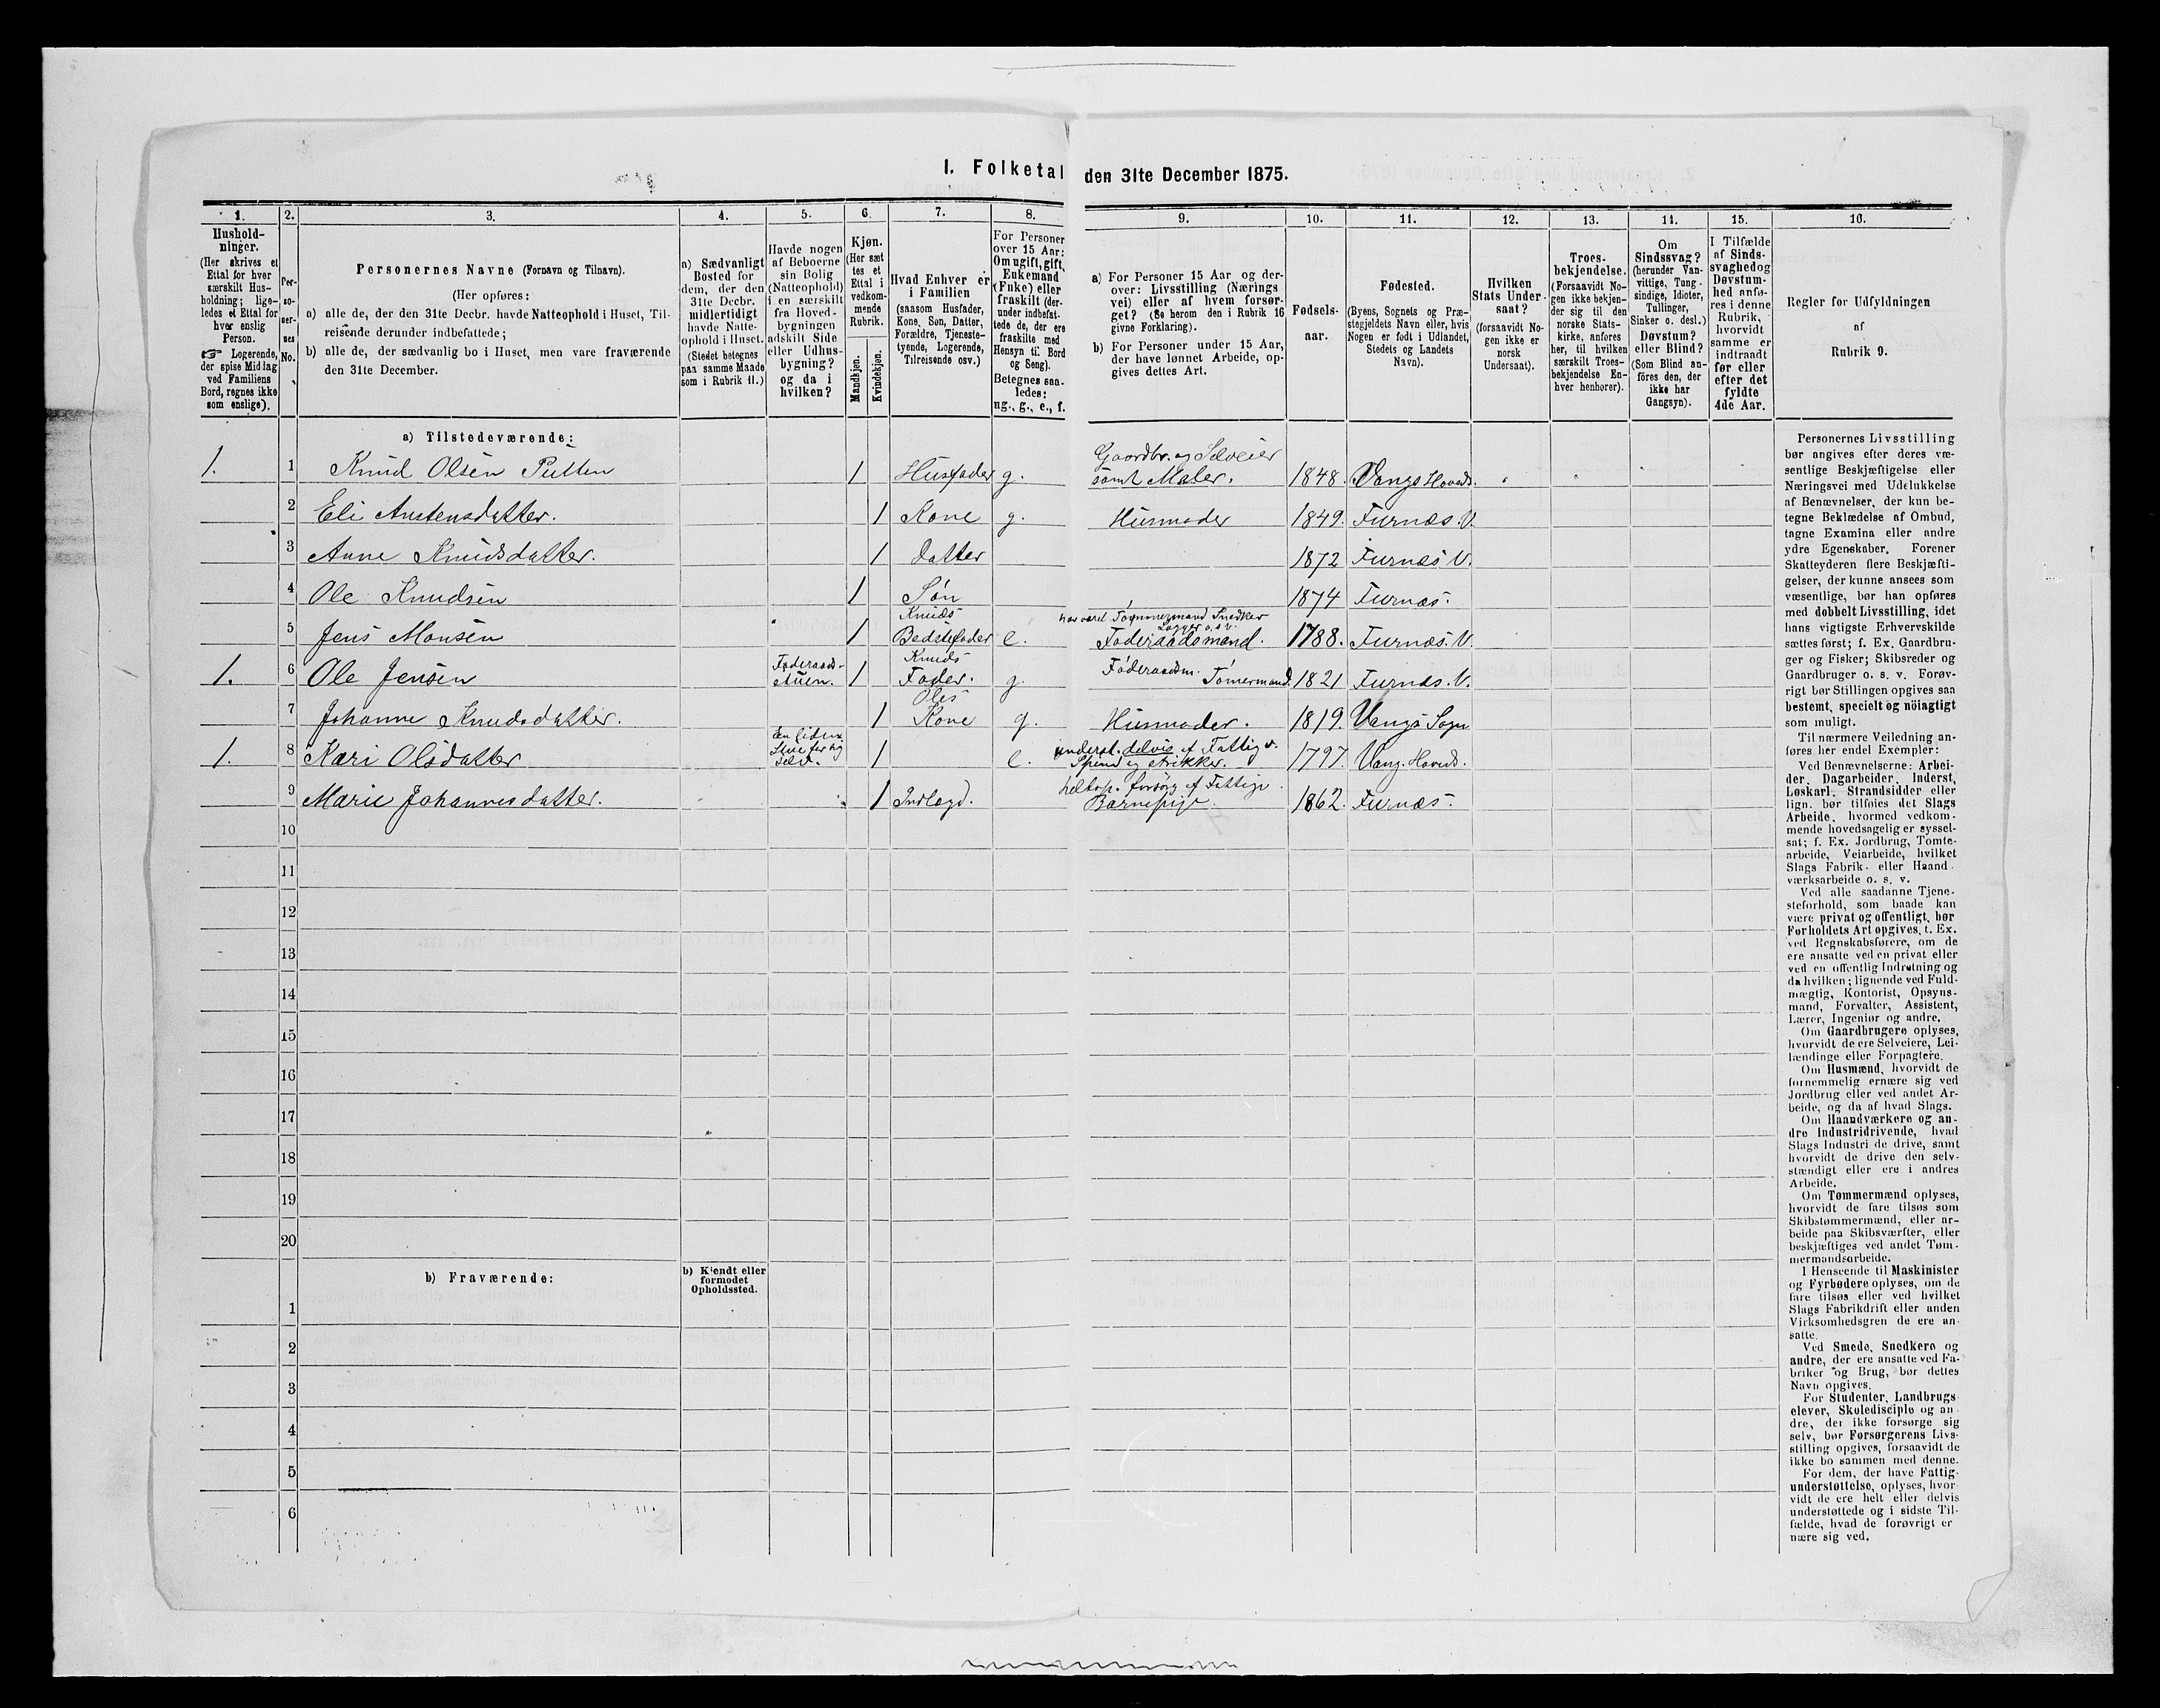 I. Folketal den 31te December 1875.
1. 2. 3. 4. 5. 6. 7. 8. 9. 10. 11. 12. 13. 14. 15. 16.
Hushold-
ninger.
(Her skrives et
Ettal for hver
særskilt Hus-
holdning; lige-
ledes et Ettal for
hver enslig
Person.
☞ Logerende,
der spise Middag
ved Familiens
Bord, regnes ikke
som enslige).
Per-
so-
ner-
nes
No.
Personernes Navne (Fornavn og Tilnavn).
(Her opføres:
a) alle de, der den 31te Decbr. havde Natteophold i Huset, Til-
reisende derunder indbefattede;
b) alle de, der sædvanlig bo i Huset, men vare fraværende
den 31te December.
a) Sædvanligt
Bosted for
dem, der den
31te Decbr.
midlertidigt
havde Natte-
ophold i Huset.
(Stedet betegnes
paa samme Maade
som i Rubrik 11.)
Havde nogen
af Beboerne
sin Bolig
(Natteophold)
i en særskilt
fra Hoved-
bygningen
adskilt Side
eller Udhus-
bygning?
og da i
hvilken?
Kjøn.
(Her sæt
tes et
Ettal i
vedkom-
mende
Rubrik.
Mandkjøn.
Kvindekjøn.
Hvad Enhver er
i Familien
(saasom Husfader,
Kone, Søn, Datter,
Forældre, Tjeneste-
tyende, Logerende,
Tilreisende osv.)
For Personer
over 15 Aar:
Om ugift, gift,
Enkemand
(Enke) eller
fraskilt (der-
under indbefat-
tede de, der ere
fraskilte med
Hensyn til Bord
og Seng).
Betegnes saa-
ledes:
ug., g., e., f.
a) For Personer 15 Aar og der-
over: Livsstilling (Nærings
vei) eller af hvem forsør-
get? (Se herom den i Rubrik 16
givne Forklaring).
b) For Personer under 15 Aar,
der have lønnet Arbeide, op-
gives dettes Art.
Fødsels-
aar.
Fødested.
(Byens, Sognets og Præ-
stegjeldets Navn eller, hvis
Nogen er født i Udlandet,
Stedets og Landets
Navn).
Hvilken
Stats Under-
saat?
(forsaavidt No-
gen ikke er
norsk
Undersaat).
Troes-
bekjendelse.
(Forsaavidt No-
gen ikke bekjen-
der sig til den
norske Stats-
kirke, anføres
her, til hvilken
særskilt Troes-
bekjendelse En-
hver henhører).
Om
Sindssvag?
(herunder Van-
vittige, Tung-
sindige, Idioter,
Tullinger,
Sinker o. desl.)
Døvstum?
eller Blind?
(Som Blind an-
føres den, der
ikke har
Gangsyn).
I Tilfælde
af Sinds-
svaghed og
Døvstum-
hed anfø-
res i denne
Rubrik,
hvorvidt
samme er
indtraadt
før eller
efter det
fyldte
4de Aar.
Regler for Udfyldningen
af
Rubrik 9.
a) Tilstedeværende:
Gaardbr. og Selveier
1. 1 Knud Olsen Putten 1 Husfader g. samt Maler. 1848. Vangs Hoveds.
2 Eli Austensdatter. 1 Kone g. Husmoder 1849. Furnæs. V.
3 Anne Knudsdatter. 1 Datter 1872 Furnæs V.
4 Ole Knudsen 1 Søn 1874 Furnæs.
Knuds har været Tømmermand Snedker
5 Jens Monsen 1 Bedstefader e. Føderaadsmand. 1788. Furnæs. V.
Føderaads- Knuds
1. 6 Ole Jensen stuen. 1 Fader. g. Føderaadsm. Tømermand. 1821 Furnæs. V.
Oles
7 Johanne Knudsdatter. 1 Kone g. Husmoder. 1819. Vangs Sogn
En liden
Stue for sig underst. delvis af Fattigv.
1. 8 Kari Olsdatter selv. 1 e. Spind og strikker. 1797. Vang. Hoveds.
forsørg af Fattigv.
9 Marie Johannesdatter. 1 Indlagd. Barnepige. 1862. Furnæs.
10
11
12
13
14
15
16
17
18
19
20
b) Fraværende:
b) Kjendt eller
formodet
Opholdssted.
1
2
3
4
5
6
Personernes Livsstilling
bør angives efter deres væ-
sentlige Beskjæftigelse eller
Næringsvei med Udelukkelse
af Benævnelser, der kun be-
tegne Beklædelse af Ombud,
tagne Examina eller andre
ydre Egenskaber. Forener
Skatteyderen flere Beskjæfti-
gelser, der kunne ansees som
væsentlige, bør han opføres
med dobbelt Livsstilling, idet
hans vigtigste Erhvervskilde
sættes først; f. Ex. Gaardbru-
ger og Fisker; Skibsreder og
Gaardbruger o. s. v. Forøv-
rigt bør Stillingen opgives saa
bestemt, specielt og nöiagtigt
som muligt.
Til nærmere Veiledning an-
føres her endel Exempler:
Ved Benævnelserne: Arbei-
der, Dagarbeider, Inderst,
Løskarl, Strandsidder eller
lign. bør tilføies det Slags
Arbeide, hvormed vedkom-
mende hovedsagelig er syssel-
sat; f. Ex. Jordbrug, Tomte-
arbeide, Veiarbeide, hvilket
Slags Fabrik- eller Haand-
værksarbeide o. s. v.
Ved alle saadanne Tjene-
steforhold, som baade kan
være privat og offentligt, bør
Forholdets Art opgives, t. Ex.
ved Regnskabsførere, om de
ere ansatte ved en privat eller
ved en offentlig Indretning og
da hvilken; lignende ved Fuld-
mægtig, Kontorist, Opsyns-
mand, Forvalter, Assistent,
Lærer, Ingeniør og andre.
Om Gaardbrugere oplyses,
hvorvidt de ere Selveiere, Lei-
lændinge eller Forpagtere.
Om Husmænd, hvorvidt de
fornemmelig ernære sig ved
Jordbrug eller ved andet Ar-
beide, og da af hvad Slags.
Om Haandværkere og an-
dre Industridrivende, hvad
Slags Industri de drive, samt
hvorvidt de drive den selv-
stændigt eller ere i andres
Arbeide.
Om Tømmermænd oplyses,
hvorvidt de fare tilsøs som
Skibstømmermænd, eller ar-
beide paa Skibsværfter, eller
beskjæftiges ved andet Tøm-
mermandsarbeide.
I Henseende til Maskinister
og Fyrbødere oplyses, om de
fare tilsøs eller ved hvilket
Slags Fabrikdrift eller anden
Virksomhedsgren de ere an-
satte.
Ved Smede, Snedkere og
andre, der ere ansatte ved Fa-
briker og Brug, bør dettes
Navn opgives.
For Studenter, Landbrugs-
elever, Skoledisciple og an-
dre, der ikke forsørge sig
selv, bør Forsørgerens Livs-
stilling opgives, forsaavidt de
ikke bo sammen med denne.
For dem, der have Fattig-
understøttelse, oplyses, hvor-
vidt de ere helt eller delvis
understøttede og i sidste Til-
fælde, hvad de forøvrigt er
nære sig ved.